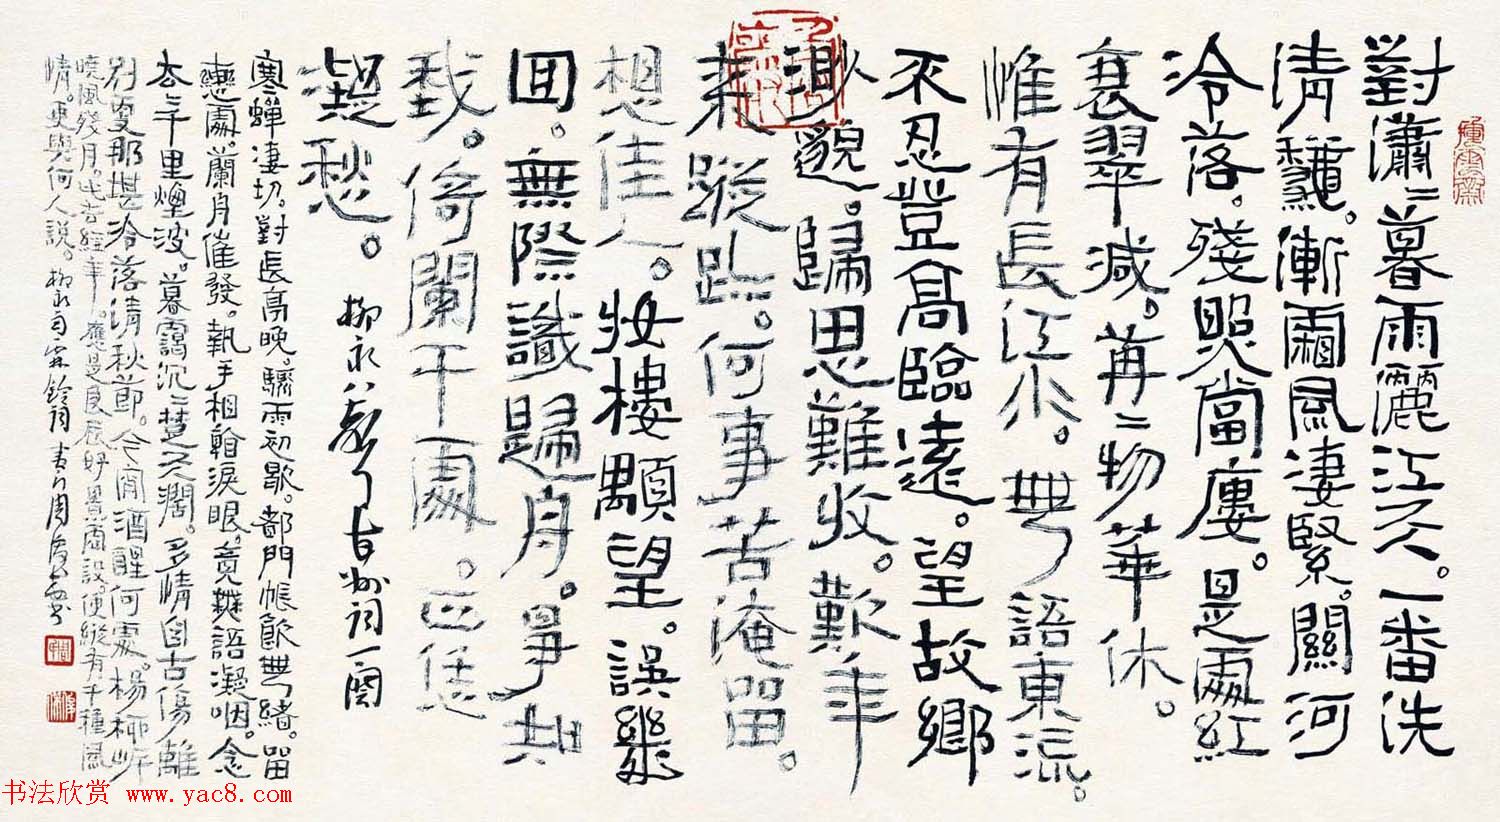 對瀟〻暮雨灑江天。一番洗
清秋。漸霜風淒緊。關河
冷落。殘照當廔。是處紅
衰翠減。苒〻物華休。
惟有長江水。無語東流。
不忍登高臨遠。望故鄉
渺邈。歸思難收。歎年
來蹤跡。何事苦淹留。
想佳人。妝樓顒望。誤幾
回。無際識歸舟。爭知
我。倚闌干處。正恁
凝愁。
柳永八聲甘州詞一闋
寒蟬淒切。對長亭晚。驟雨初歇。都門帳飲無緒。留
戀處。蘭舟催發。執手相看淚眼。竟無語凝咽。念
去〻千里煙波。暮靄沉〻楚天闊。多情自古傷離
別。更那堪冷落清秋節。今宵酒醒何處。楊柳岸
曉風殘月。此去經年。應是良辰好景虛設。便縱有千種風
情。更與何人說。柳永雨霖鈴詞
书法欣赏 www.yac8.com